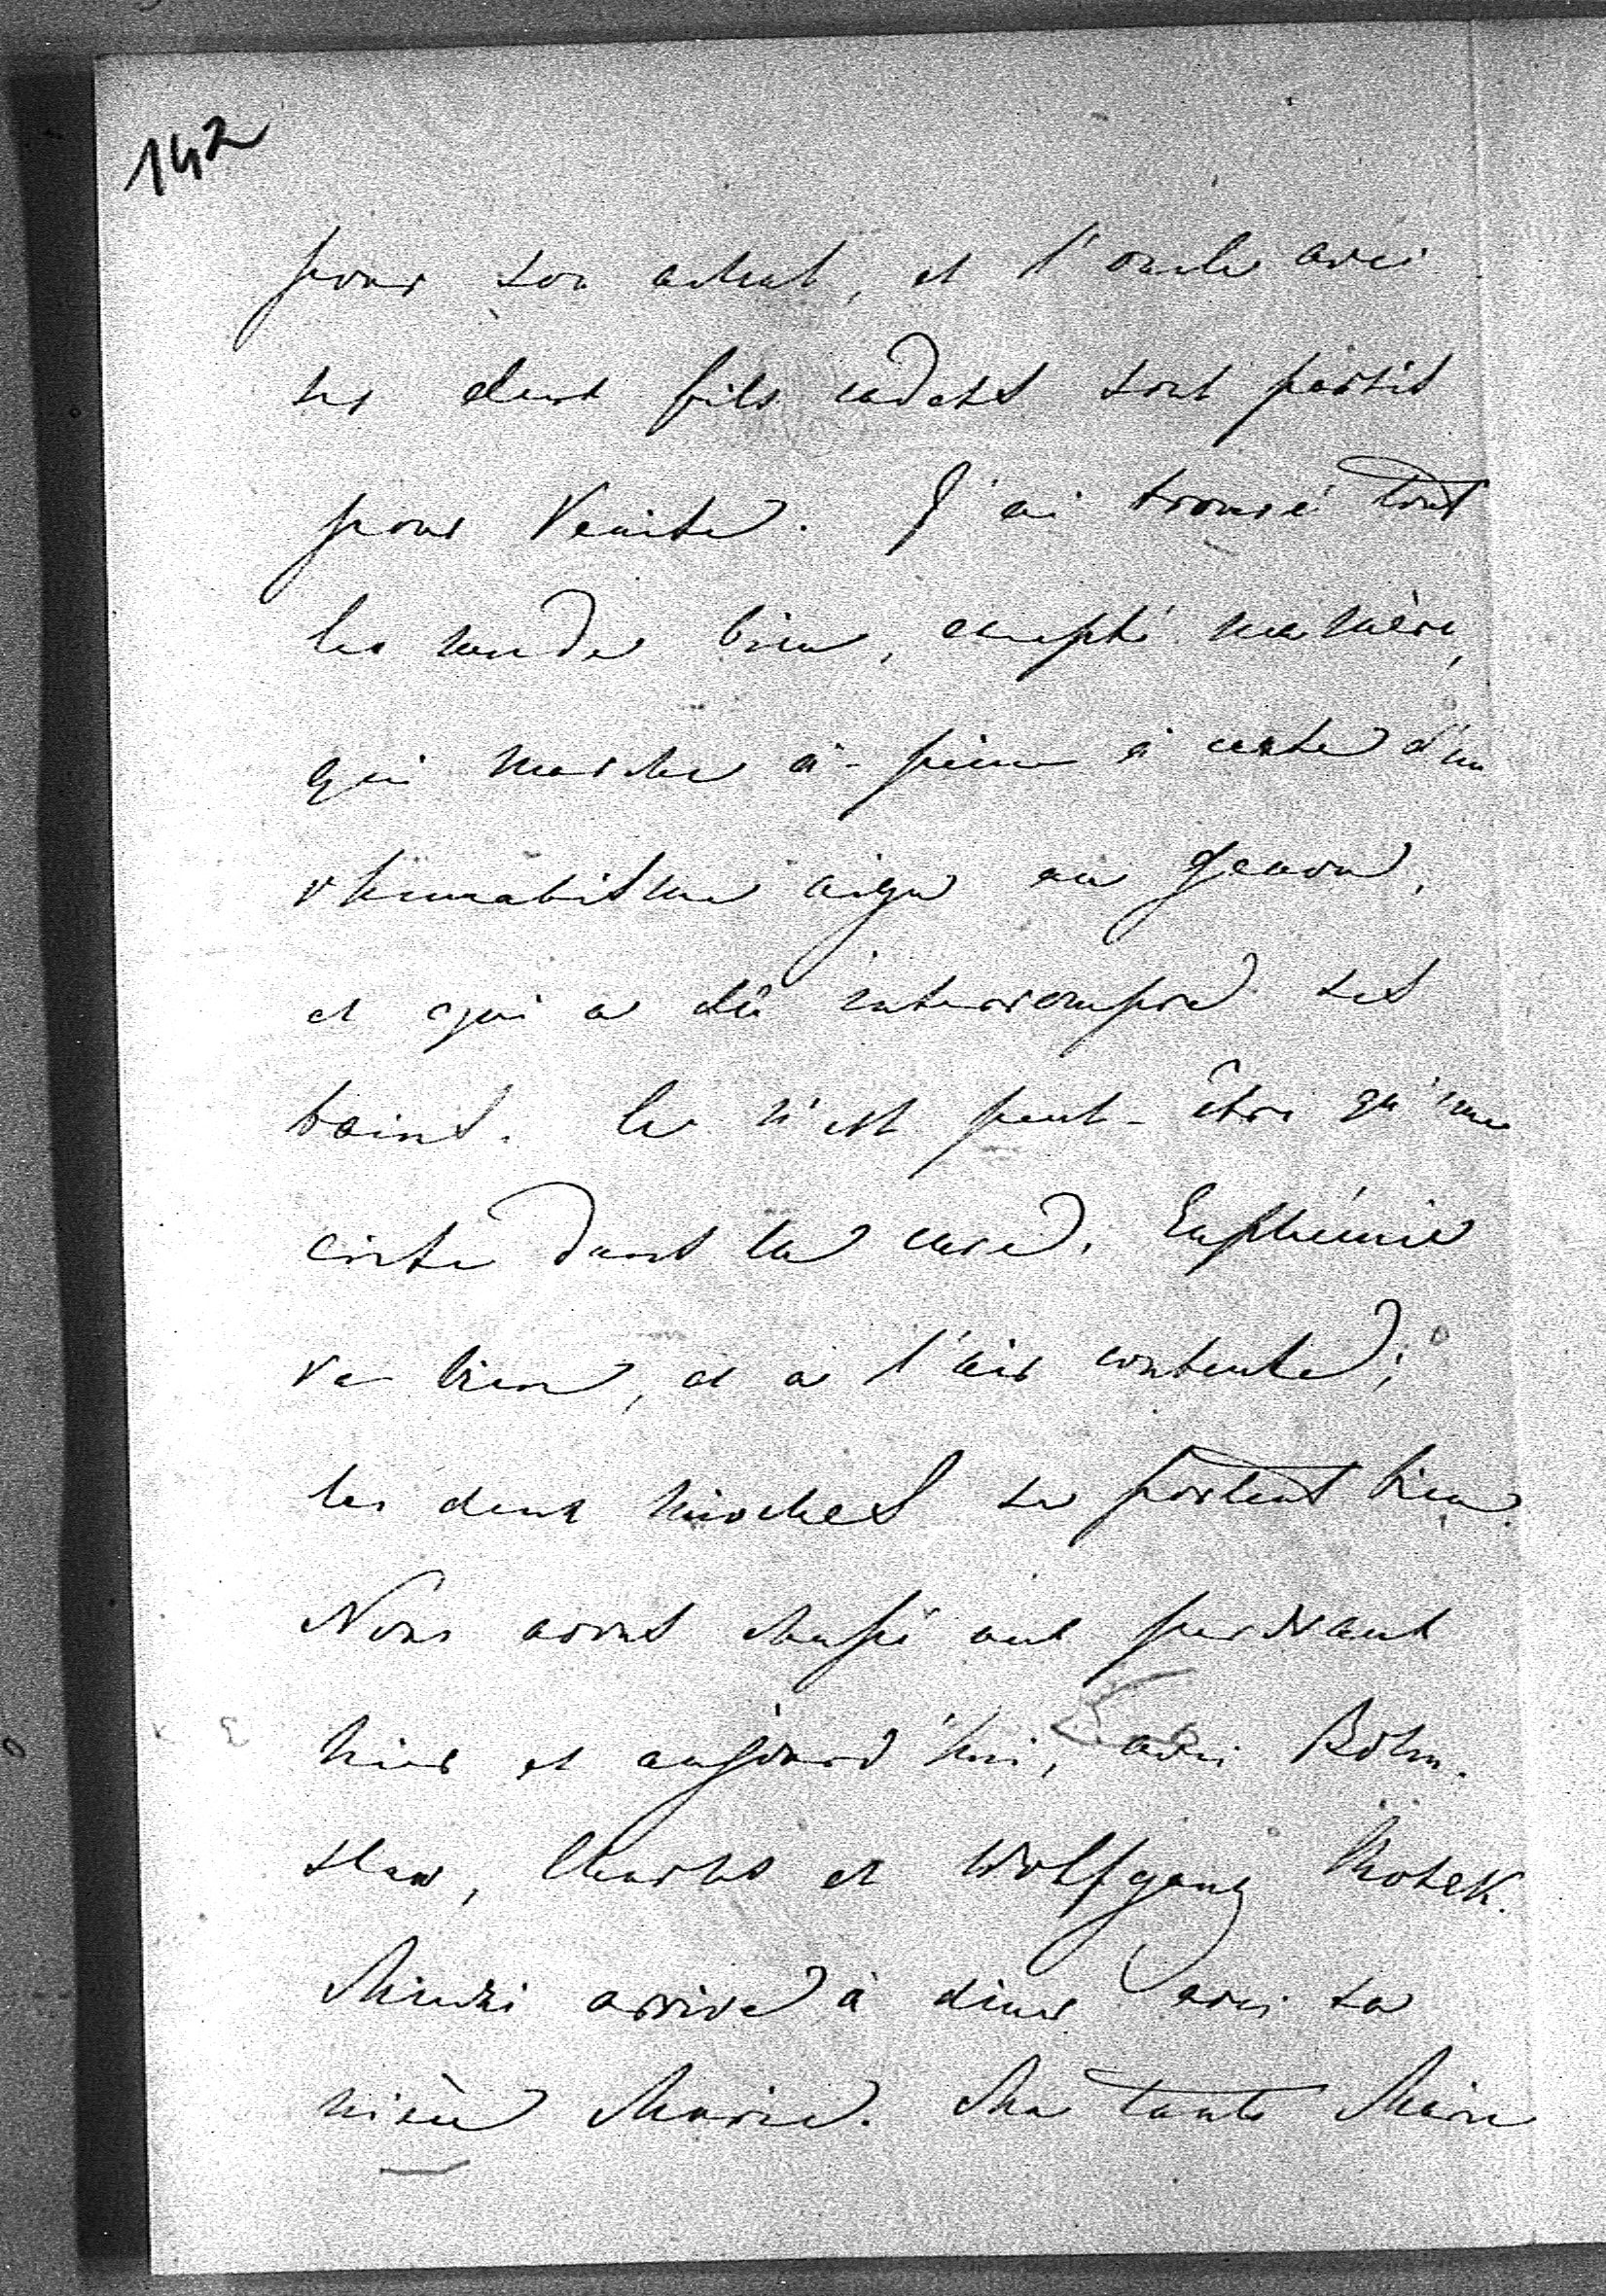 142
pour son achat, et l'oncle avec
ses deux fils cadets sont partis
pour Venise. J'ai trouvé tout
le monde bien, excepté ma mère,
qui marche à-peine à cause d'un
rhumatisme aigu au genou,
et qui a dû interrompre ses
bains. Ce n'est peut-être qu'une
crise dans la cure. Euphémie
va bien, et a l'air contente;
les deux mioches se portent bien.
Nous avons chassé aux perdreaux
hier et aujourd'hui, avec Bohu-
slaw, Charles et Wolfgang Chotek.
arrive à diner avec sa
nièce Marie. Ma tante Marie